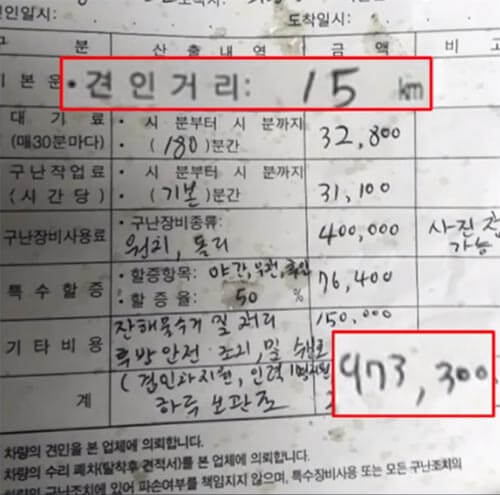 인일시:
도착일시:
분 산 출 내 역 금 액 비
기본운
• 견인거리: 15 km
대 기 료 • 시 분부터 시 분까지
(매30분마다) • (180)분간 32,800
구난작업료 • 시 분부터 시 분까지
(시 간 당) • (기본)분간 31,100
구난장비사용료 • 구난장비종류: 400,000 사진
윈치, 돌리 가능
특 수 할 증 • 할증항목: 야간, 우천, 76,400
• 할 증 율: 50 %
기 타 비 용 잔해물수거 및 처리 150,000
후방안전 조치, 및
(견인과지원, 인력 973,300
계 하루 보관료
차량의 견인을 본 업체에 의뢰합니다.
차량의 수리 폐차(탈착후 견적서)를 본 업체에 의뢰합니다.
차량의 구난조치에 있어 파손여부를 책임지지 않으며, 특수장비사용 또는 모든 구난조치의